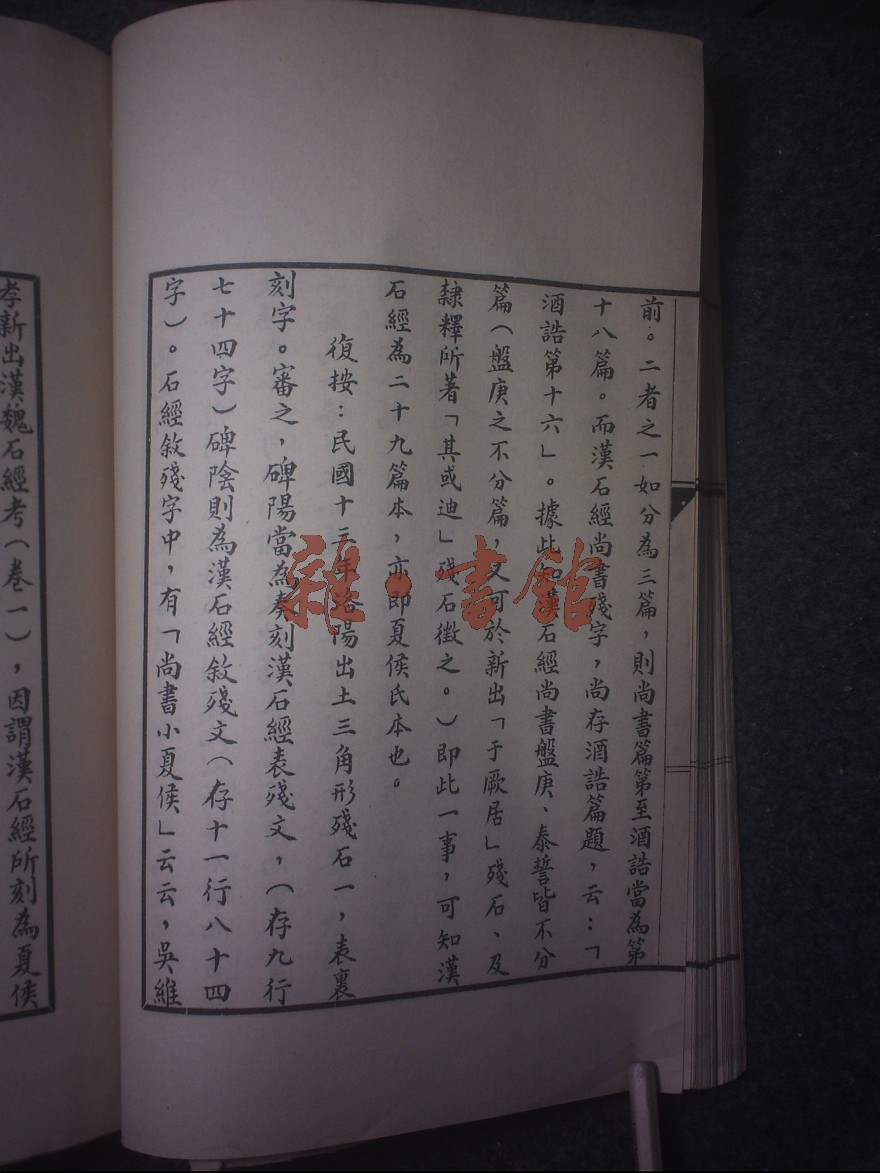 前。二者之一如分為三篇，則尚書篇第至酒誥當為第
十八篇。而漢石經尚書殘字，尚存酒誥篇題，云：「
酒誥第十六」。據此知漢石經尚書盤庚、泰誓皆不分
篇（盤庚之不分篇，又可於新出「于厥居」殘石、及
隸釋所著「其或迪」殘石徵之。）即此一事，可知漢
石經為二十九篇本，亦即夏侯氏本也。
復按：民國十三年洛陽出土三角形殘石一，表裏
刻字。審之，碑陽當為奏刻漢石經表殘文，（存九行
七十四字）碑陰則為漢石經敘殘文（存十一行八十四
字）。石經敘殘字中，有「尚書小夏侯」云云，吳維
孝新出漢魏石經考（卷一），因謂漢石經所刻為夏侯
雜·書館